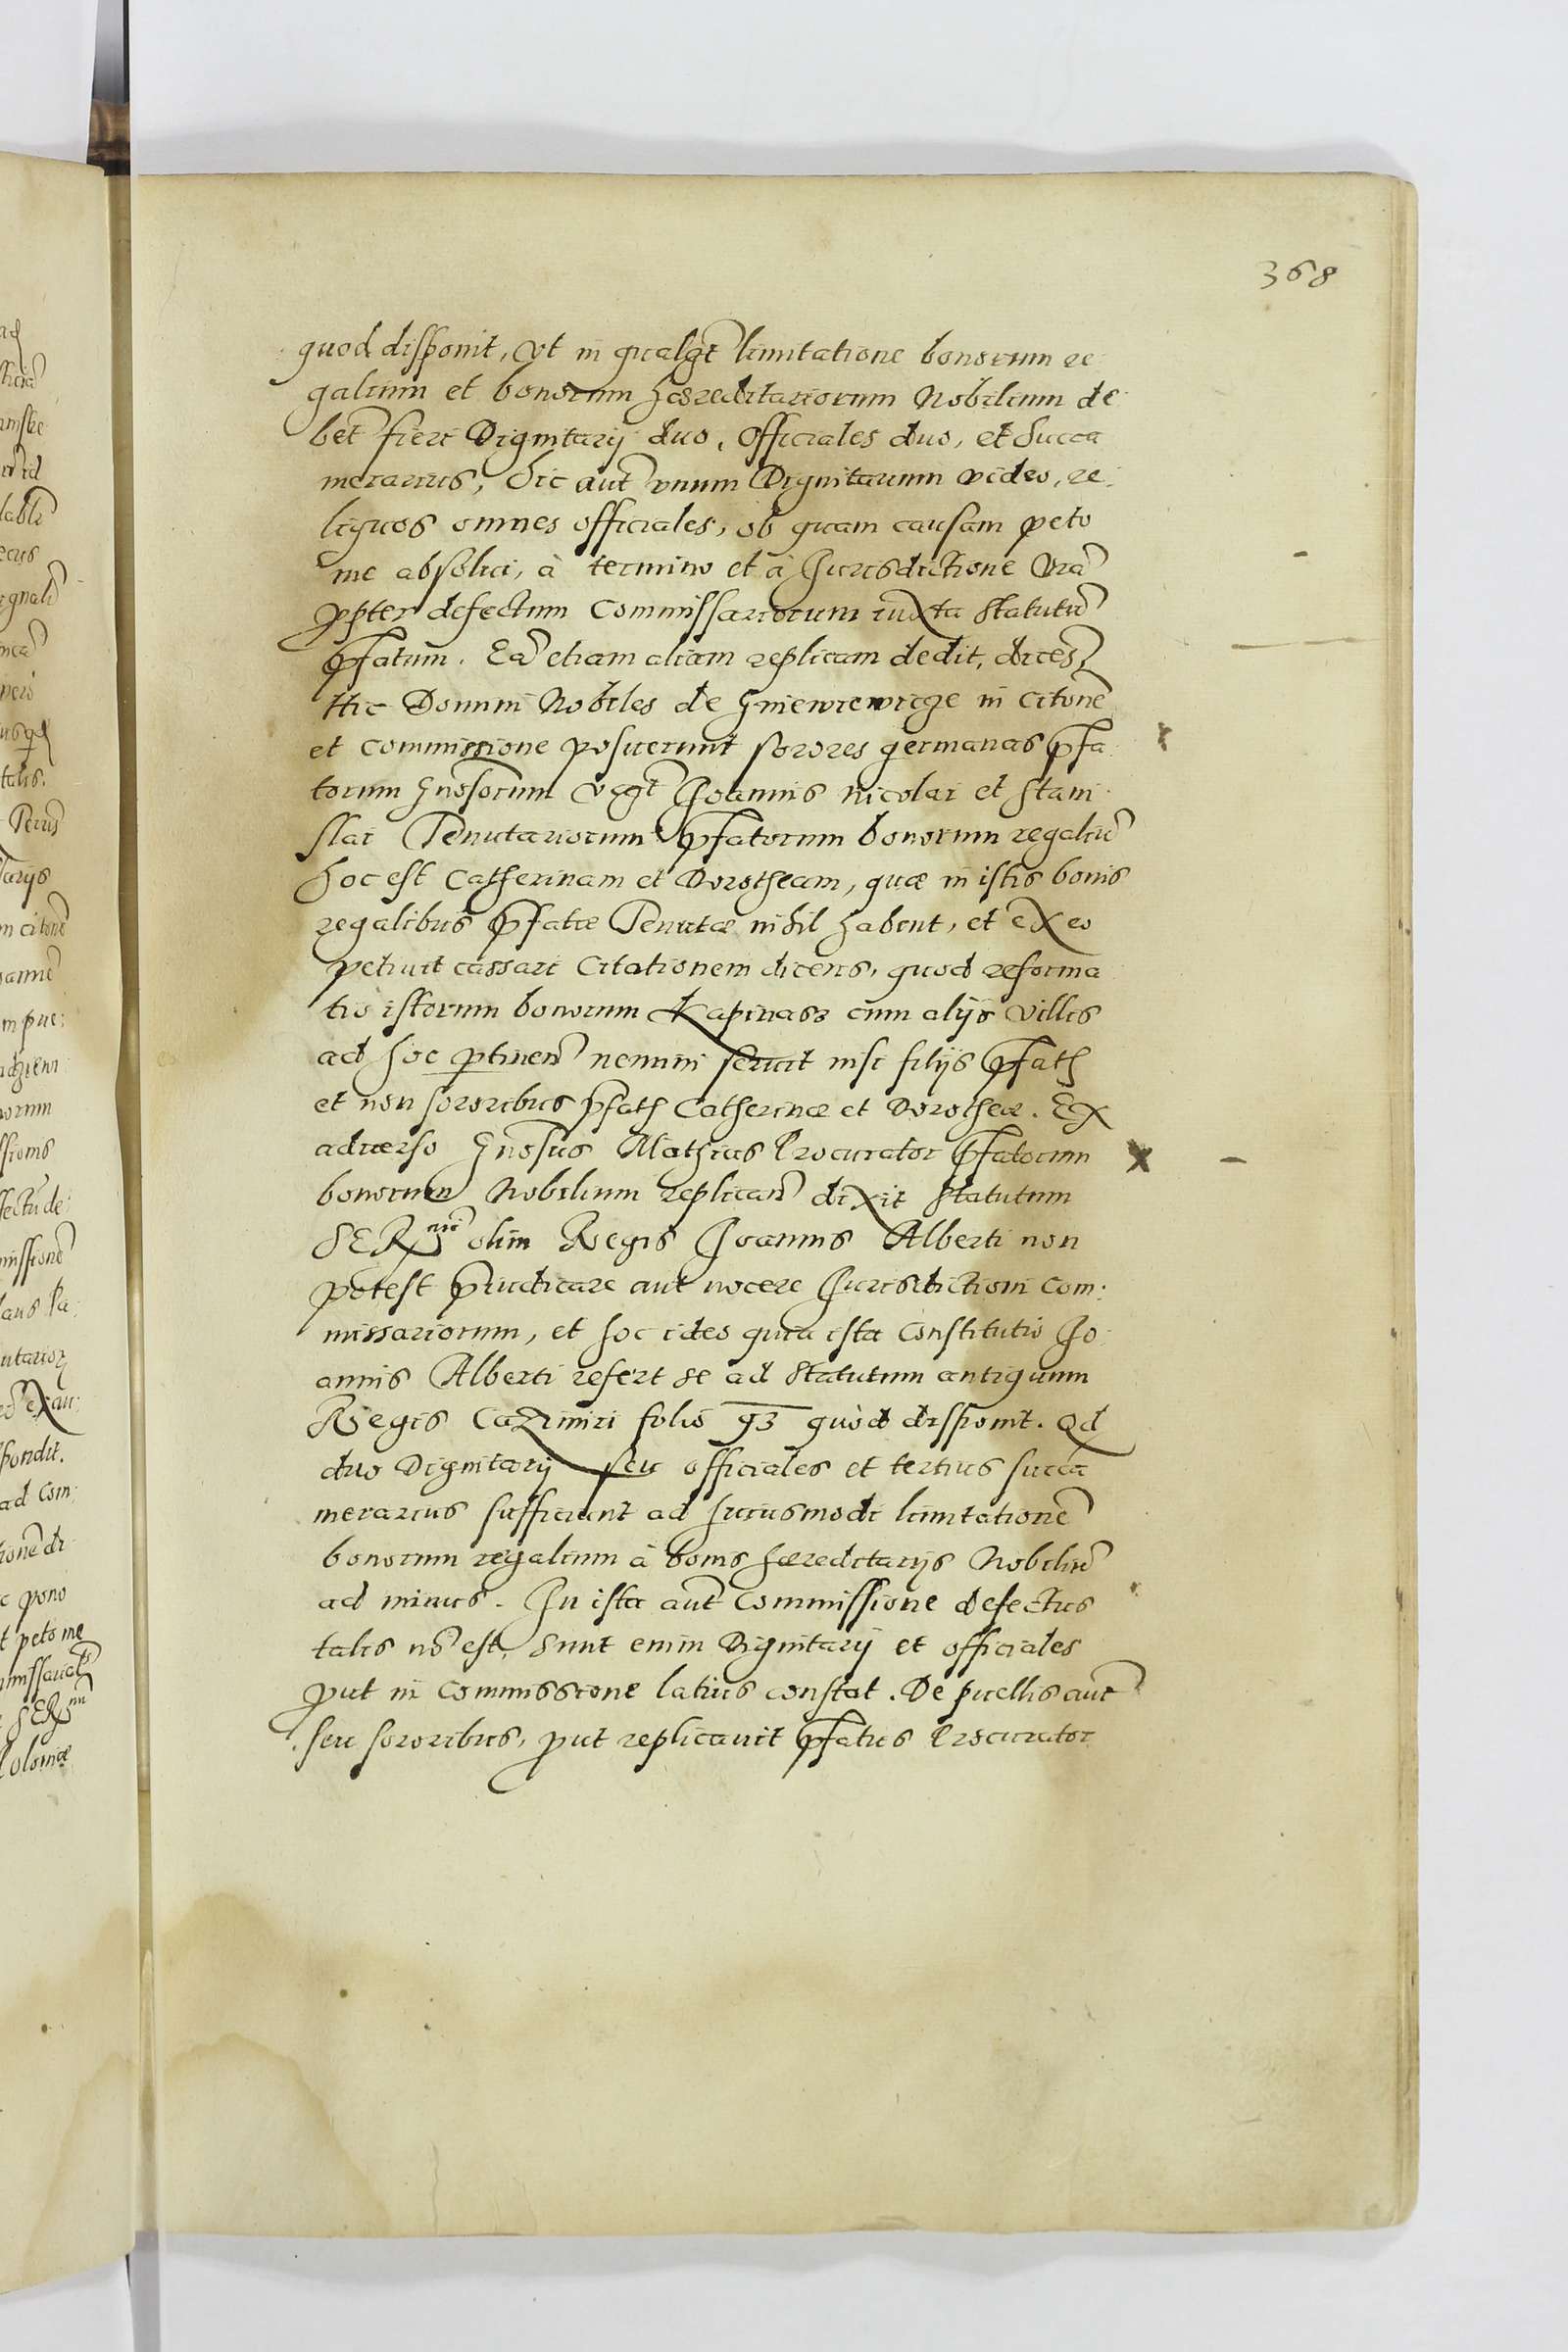 368
quod disponit, vt in qualęt limitatione bonorum re
galium et bonorum hæreditariorum Nobilium de
bet fieri Dignitarij duo, officiales duo, et Succa
merarius, hic aut̃ vnum Dignitarium video, re
liquos omnes officiales, ob quam causam peto
me absolui, à termino et à Jurisdictione Vr̃a
ꝓpter defectum Commissariorum iuxta Statutũ
p̃fatum. Eã etiam aliam replicam dedit, dicẽs,
Hic Domini Nobiles de Gniewiewicze in citoñe
et commissione posuerunt sorores germanas p̃fa
torum Gñosorum Joannis Nicolai et Stani
slai Tenutariorum p̃fatorum bonorum regaliũ
hoc est Catherinam et Dorotheam, quæ in istis bonis
regalibus p̃fatæ Tenutæ nihil habent, et ex eo
petiuit cassari Citationem dicens, quod reforma
tio istorum bonorum cum alijs villis
ad hoc ptineñ nemini seruit nisi filijs p̃fat
et non sororibus p̃fat Catherinæ et Dorotheæ. Ex
aduerso Gñosus Mathias Procurator p̃fatorum
bonorum Nobilium replicañ dixit Statutum
SERmi olim Regis Joannis Alberti non
potest p̃iudicare aut nocere Jurisdictioni Com:
missariorum, et hoc ideo quia ista Constitutio Jo
annis Alberti refert se ad Statutum antiquum
Regis Cazimiri folio 93 quòd disponit. Qd
duo Dignitarij seu officiales et tertius succa
merarius sufficiunt ad huiusmodi limitationẽ
bonorum regalium à bonis hæreditarijs Nobiliũ
ad minus. In ista aut̃ Commissione defectus
talis nõ est, Sunt enim Dignitarij et officiales
ꝓut in Commissione latius constat. De puellis aut̃
seu sororibus, ꝓut replicauit p̃fatus Procurator